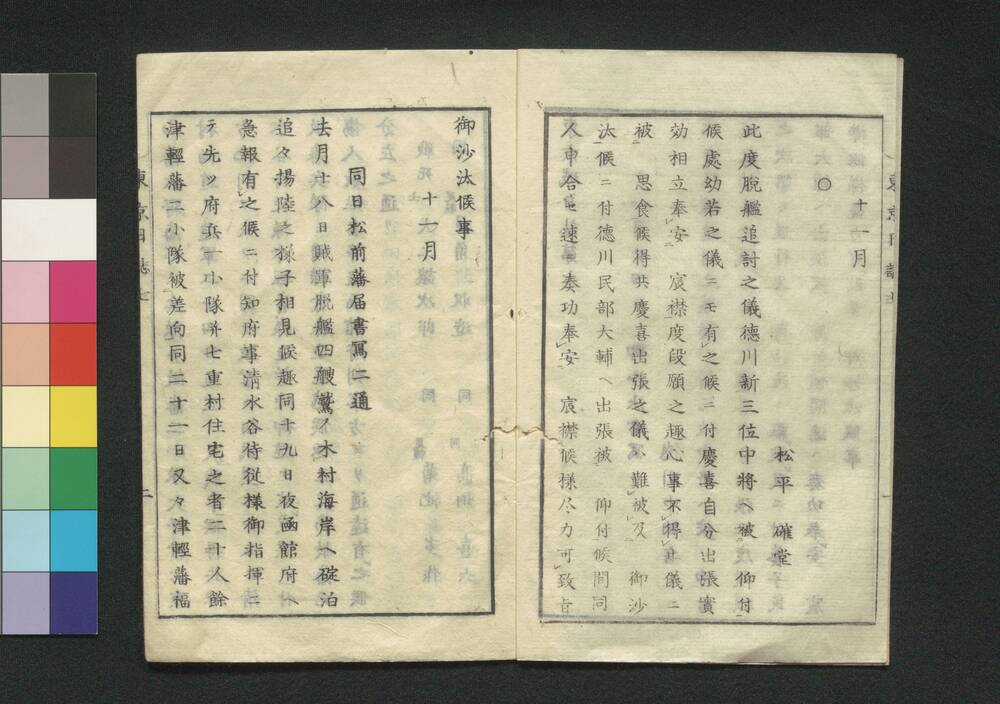 十一月
○
松平 確堂
此度脱艦追討之儀徳川新三位中將ヘ被 仰付
候處幼若之儀ニモ有之候ニ付慶喜自分出張實
効相立奉安 宸襟度段願之趣心事不得共儀ニ
被 思食候得共慶喜出張之儀ハ難被及 御沙
汰候ニ付德川民部大輔ヘ出張被 仰付候間同
人申合セ速ニ奏功奉安 宸襟候様尽力可致旨
東京日誌七
御沙汰候事
十一月
同日松前藩届書寫二通
去月十八日賊軍脱艦四艘鷲ノ木村海岸ヘ碇泊
追々揚陸之様子相見候趣同十九日夜函館府ヘ
急報有之候ニ付知府事清水谷侍従様御指揮ニ
テ先ッ府兵一小隊并七重村住宅之者二十人餘
津輕藩二小隊被差向同二十一日又々津輕藩福
二